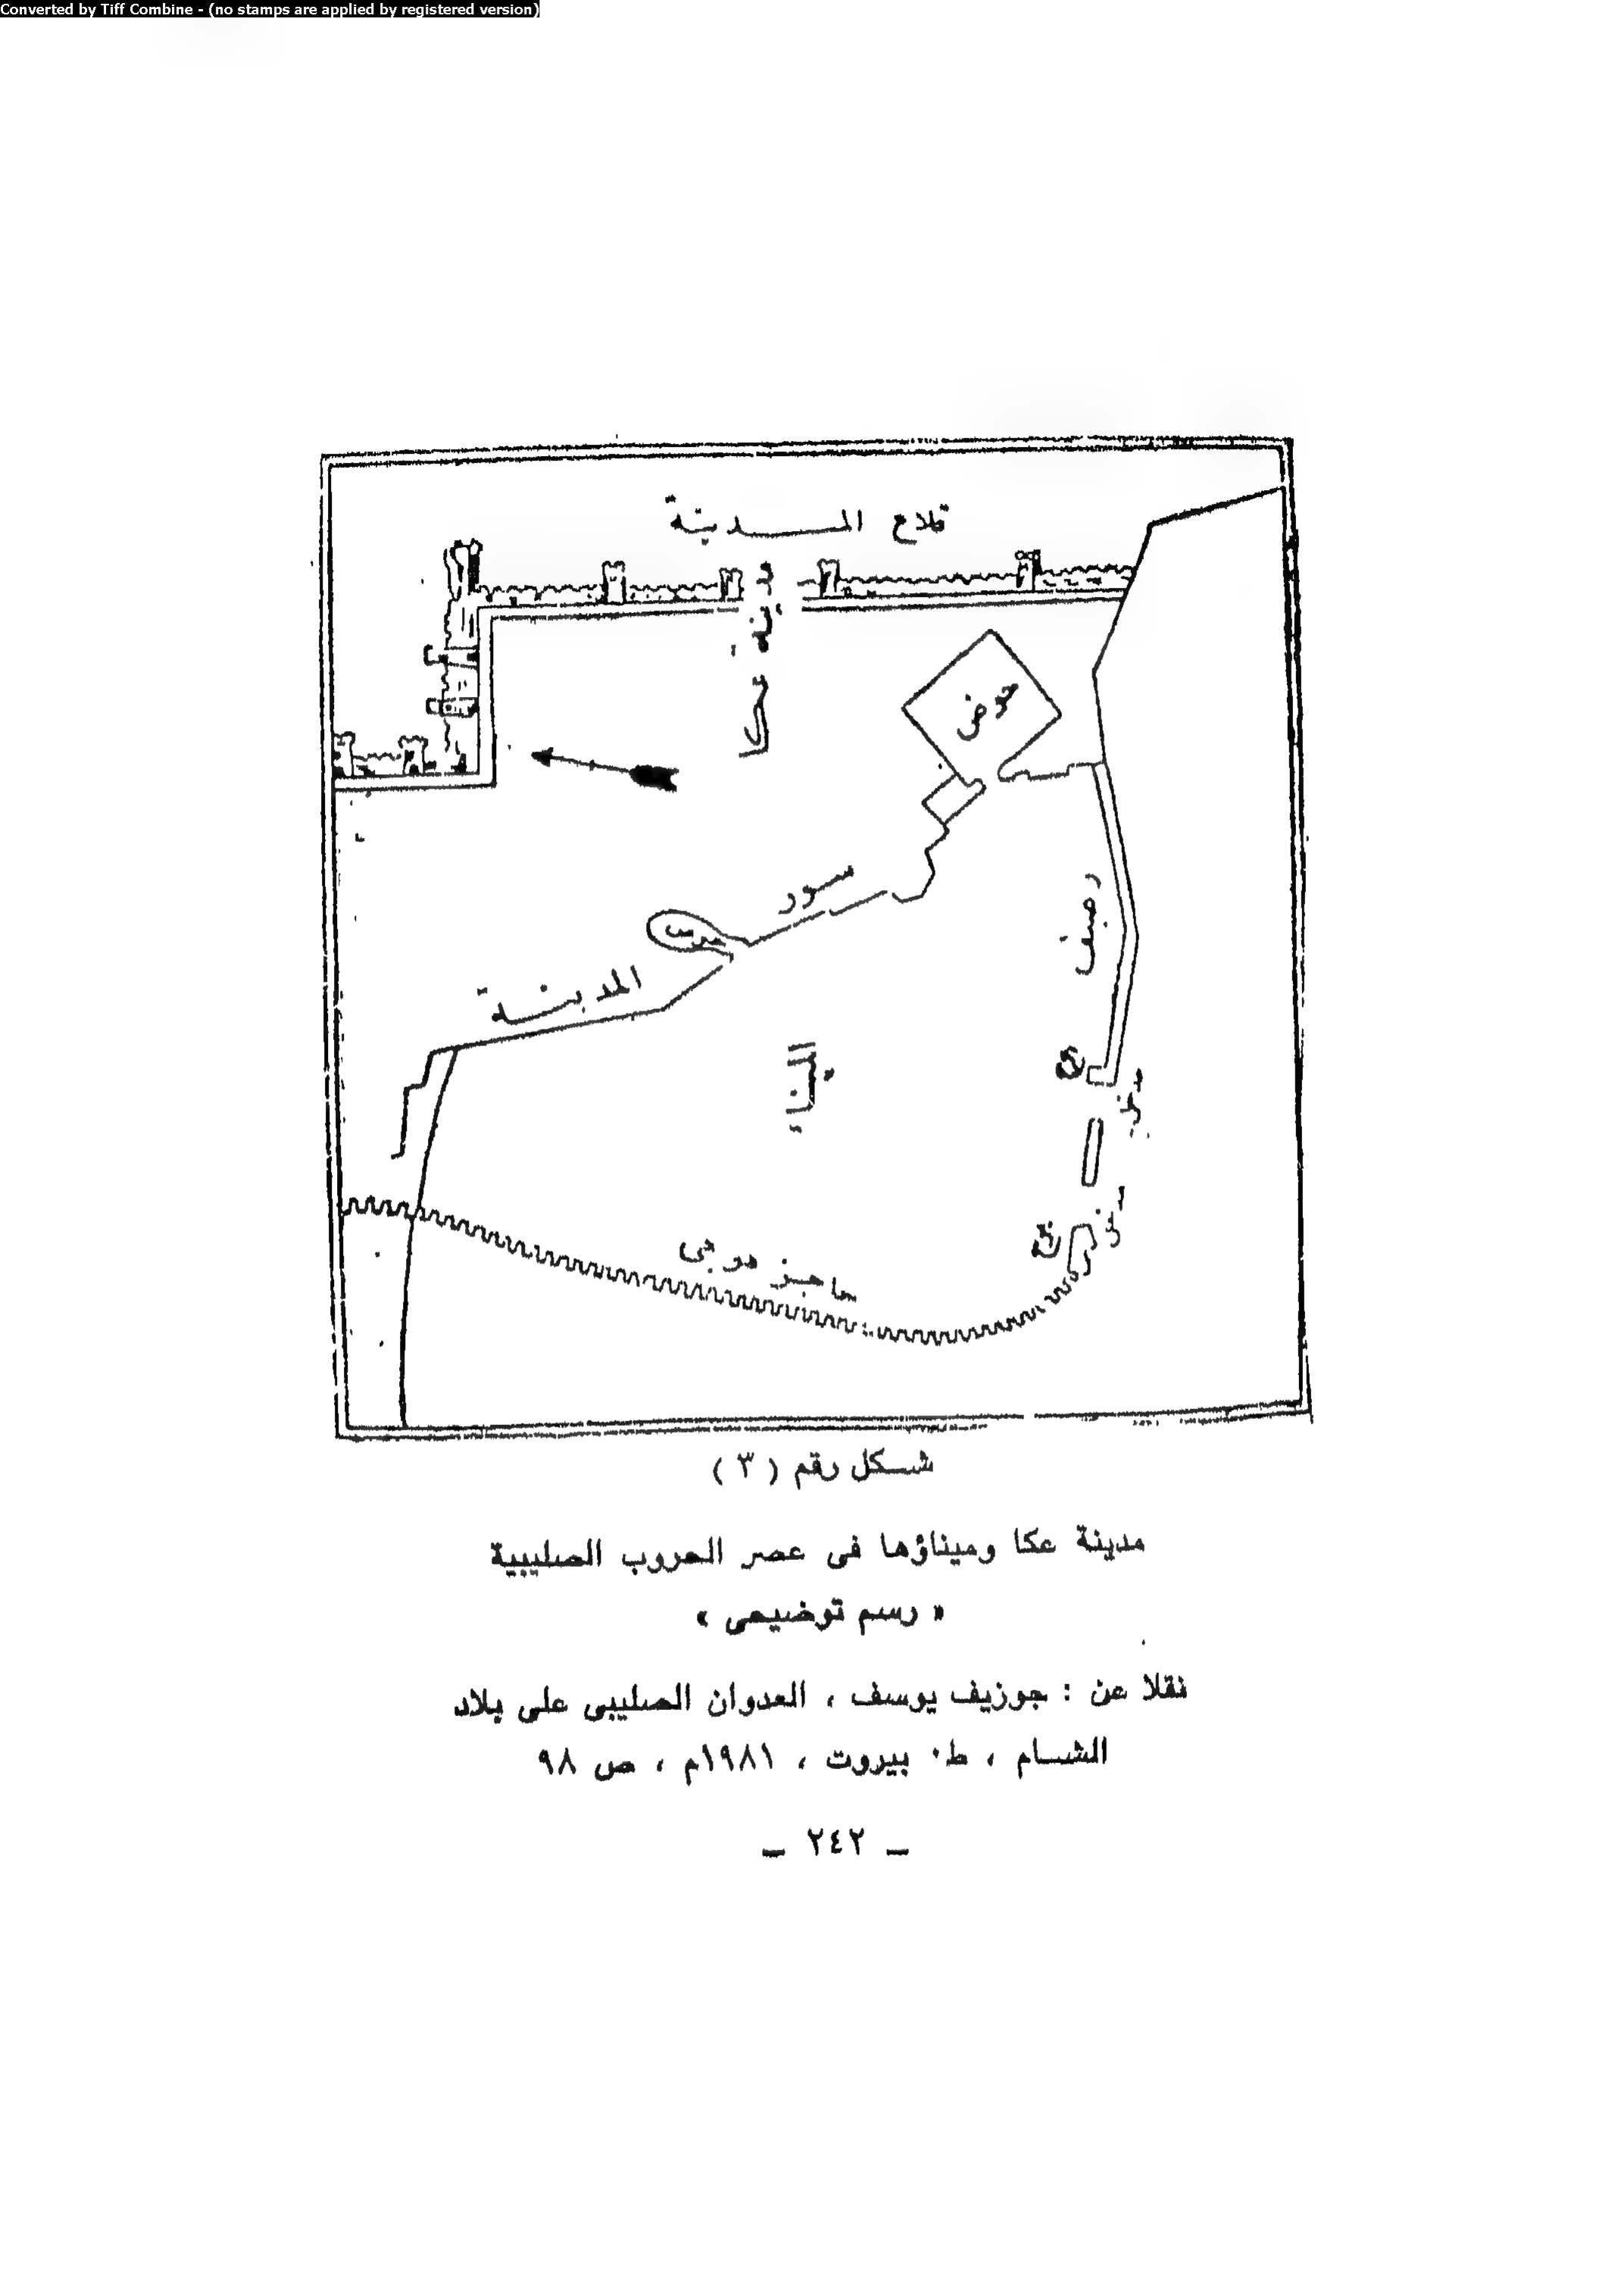 Converted by Tiff Combine - (no stamps are applied by registered version)
قلاع المـــدينة
مدينة عكا
حوض
سور
المدينة
رصيف
الميناء
حاجز موجى
شـكل رقم ( ٣ )
مدينة عكا وميناؤها فى عصر الحروب الصليبية
« رسم توضيحى »
نقلا عن : جوزيف يوسف ، العدوان الصليبى على بلاد
الشـام ، ط٠ بيروت ، ١٩٨١م ، ص ٩٨
ـ ٢٤٢ ـ